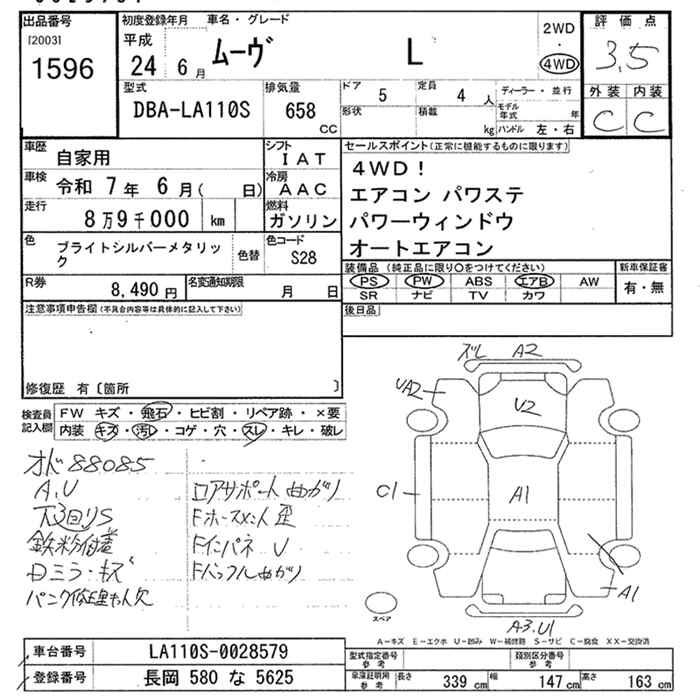 出品番号
[2003]
1596
初度登録年月
平成
24 6月
車名・グレード
ムーヴ L
2WD
・
4WD
評価点
3.5
外装 内装
C C
型式
DBA-LA110S
排気量
658
cc
ドア
5
定員
4 人
形状
積載
kg
ディーラー・並行
モデル年式 年
ハンドル 左・右
車歴
自家用
シフト
IAT
車検
令和 7年 6月( 日)
冷房
AAC
走行
8万9千000 km
燃料
ガソリン
色
ブライトシルバーメタリック
色替
色コード
S28
R券
8,490 円
名変通知期限
月 日
セールスポイント(正常に機能するものに限ります)
4WD!
エアコン パワステ
パワーウィンドウ
オートエアコン
装備品 (純正品に限り○をつけてください)
PS PW ABS エアB AW
SR ナビ TV カワ
新車保証書
有・無
後日品
注意事項申告欄(不具合内容等は具体的に記入して下さい)
修復歴 有〔箇所 〕
検査員記入欄
FW キズ・飛石・ヒビ割・リペア跡・×要
内装 キズ・汚レ・コゲ・穴・スレ・キレ・破レ
オド 88085
A.U
下回りS
鉄粉付着
Dミラ・キズ
パンク修理キット欠
ロアサポート曲がり
Fホースメント歪
Fインパネ U
Fバッフル曲がり
ズレ A2
UA2
U2
C1
A1
A1
A3.U1
スペア
A-キズ E-エクボ U-凹み W-補修跡 S-サビ C-腐食 XX-交換済
車台番号
LA110S-0028579
登録番号
長岡 580 な 5625
型式指定番号
参考
類別区分番号
参考
車庫証明用
参考
長さ 339 cm
幅 147 cm
高さ 163 cm